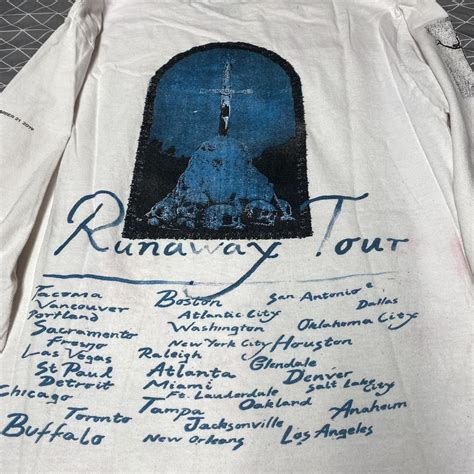 Runaway Tour
Tacoma
Vancouver
Portland
Sacramento
Fresno
Las Vegas
St Paul
Detroit
Chicago
Toronto
Buffalo
Boston
Atlantic City
Washington
New York City
Raleigh
Atlanta
Miami
Ft. Lauderdale
Tampa
Jacksonville
New Orleans
San Antonio
Dallas
Oklahoma City
Houston
Glendale
Denver
Salt Lake City
Oakland
Anaheim
Los Angeles